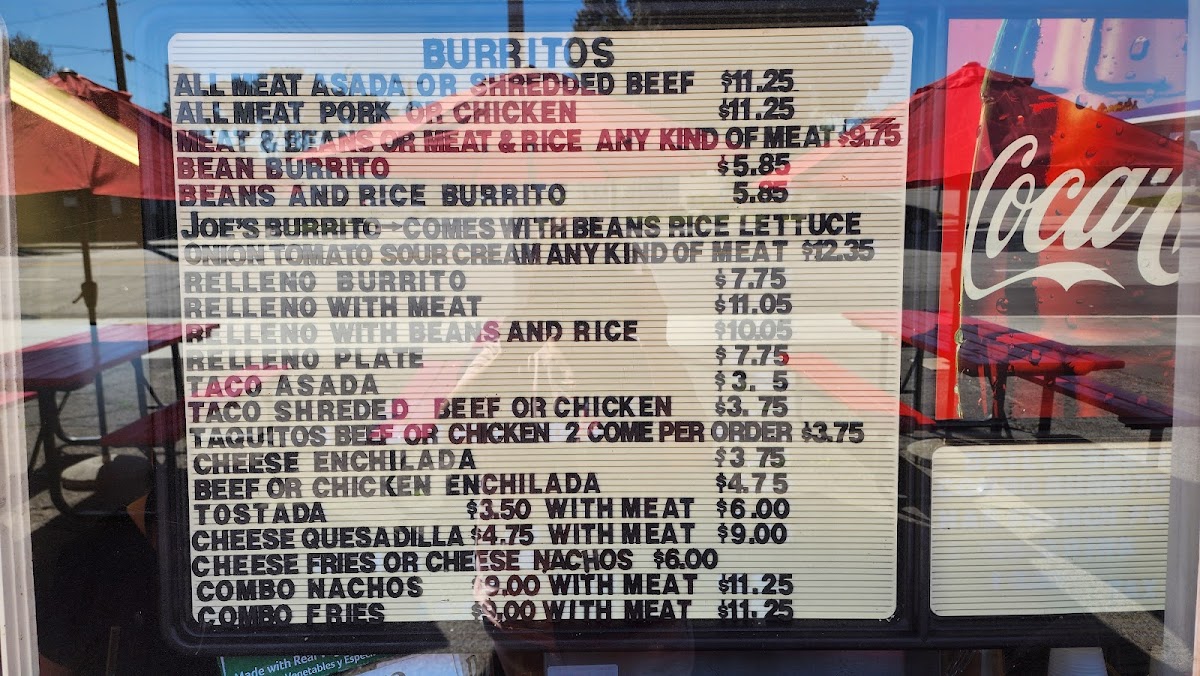 BURRITOS
ALL MEAT ASADA OR SHREDDED BEEF $11.25
ALL MEAT PORK OR CHICKEN $11.25
MEAT & BEANS OR MEAT & RICE ANY KIND OF MEAT $9.75
BEAN BURRITO $5.85
BEANS AND RICE BURRITO 5.85
JOE'S BURRITO - COMES WITH BEANS RICE LETTUCE
ONION TOMATO SOUR CREAM ANY KIND OF MEAT $12.35
RELLENO BURRITO $7.75
RELLENO WITH MEAT $11.05
RELLENO WITH BEANS AND RICE $10.05
RELLENO PLATE $7.75
TACO ASADA $3. 5
TACO SHREDED BEEF OR CHICKEN $3.75
TAQUITOS BEEF OR CHICKEN 2 COME PER ORDER $3.75
CHEESE ENCHILADA $3 75
BEEF OR CHICKEN ENCHILADA $4.75
TOSTADA $3.50 WITH MEAT $6.00
CHEESE QUESADILLA $4.75 WITH MEAT $9.00
CHEESE FRIES OR CHEESE NACHOS $6.00
COMBO NACHOS $9.00 WITH MEAT $11.25
COMBO FRIES $9.00 WITH MEAT $11.25
Coca-C
Made with Real
Vegetables y Especi